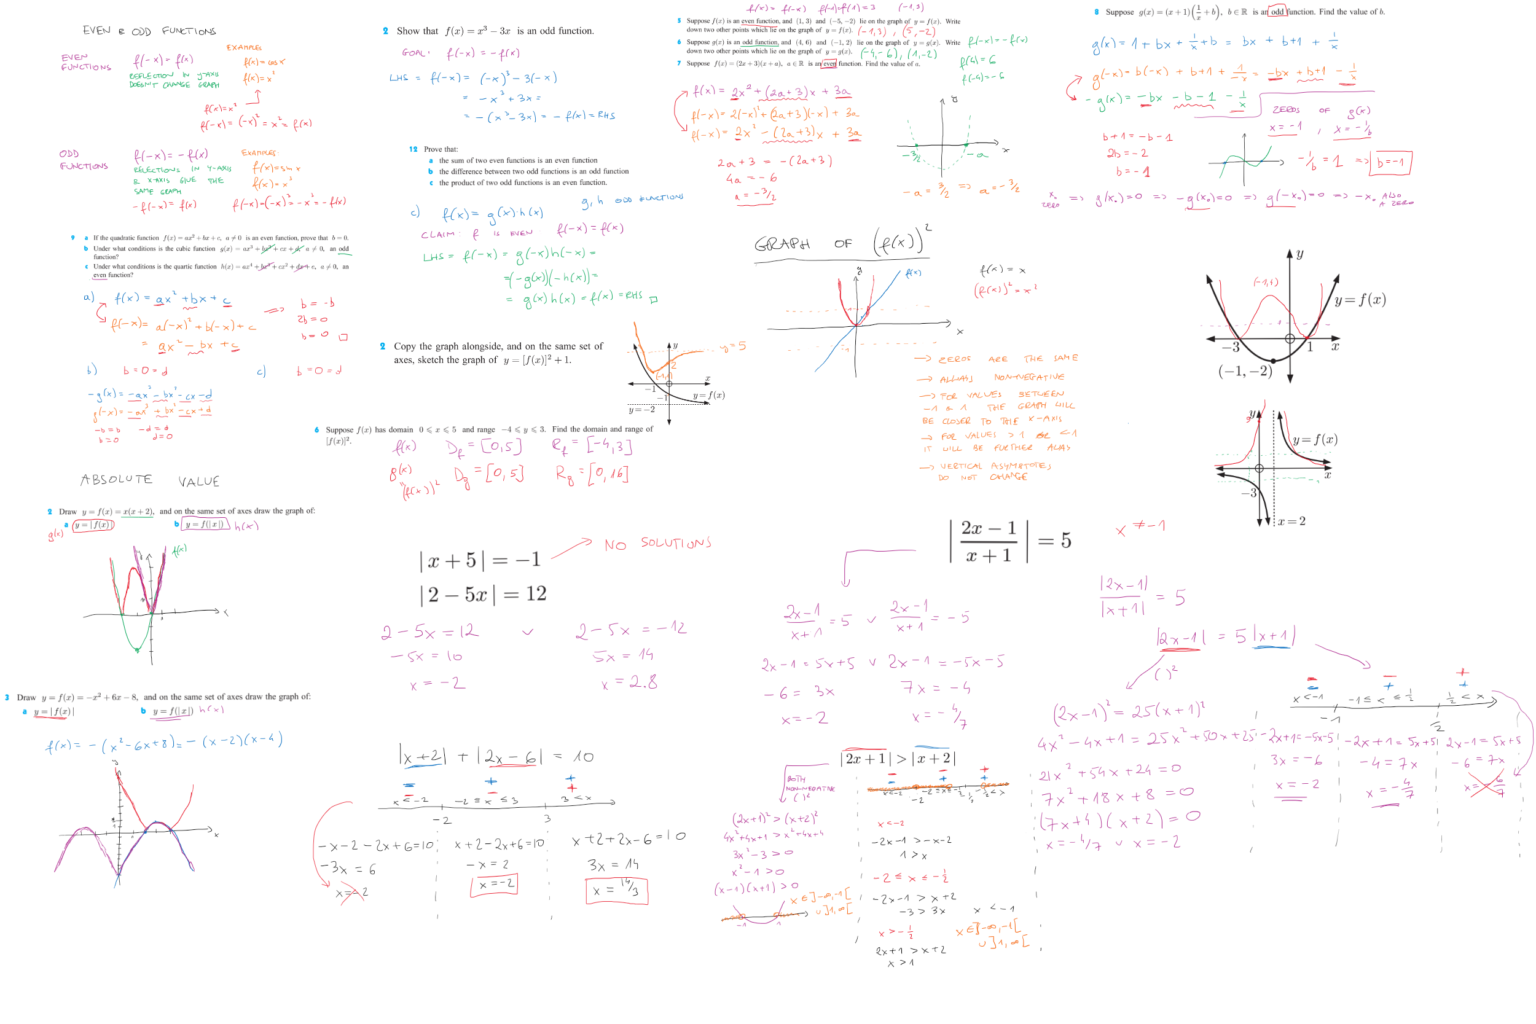 EVEN & ODD FUNCTIONS
EVEN FUNCTIONS
f(-x) = f(x)
REFLECTION IN Y-AXIS
DOESN'T CHANGE GRAPH
EXAMPLES
f(x)=cos x
f(x)=x²
f(x)=x²
f(-x)= (-x)² = x² = f(x)
ODD FUNCTIONS
f(-x) = -f(x)
REFLECTIONS IN Y-AXIS
& X-AXIS GIVE THE
SAME GRAPH
-f(-x) = f(x)
EXAMPLES:
f(x)=sin x
f(x)=x³
f(-x)=(-x)³=-x³=-f(x)
9 a If the quadratic function f(x) = ax² + bx + c, a ≠ 0 is an even function, prove that b = 0.
b Under what conditions is the cubic function g(x) = ax³ + bx² + cx + d, a ≠ 0, an odd
function?
c Under what conditions is the quartic function h(x) = ax⁴ + bx³ + cx² + dx + e, a ≠ 0, an
even function?
a) f(x) = ax² + bx + c
f(-x) = a(-x)² + b(-x) + c
= ax² - bx + c
=> b = -b
2b = 0
b = 0 □
b) b=0=d
c) b=0=d
-g(x) = -ax³ - bx² - cx - d
g(-x) = -ax³ + bx² - cx + d
-b=b
b=0
-d=d
d=0
ABSOLUTE VALUE
2 Draw y = f(x) = x(x+2), and on the same set of axes draw the graph of:
a y = |f(x)|
g(x)
b y = f(|x|) h(x)
f(x)
x
3 Draw y = f(x) = -x² + 6x - 8, and on the same set of axes draw the graph of:
a y = |f(x)|
b y = f(|x|) h(x)
f(x) = -(x²-6x+8) = -(x-2)(x-4)
x
2 Show that f(x) = x³ - 3x is an odd function.
GOAL: f(-x) = -f(x)
LHS = f(-x) = (-x)³ - 3(-x)
= -x³ + 3x =
= -(x³-3x) = -f(x) = RHS
12 Prove that:
a the sum of two even functions is an even function
b the difference between two odd functions is an odd function
c the product of two odd functions is an even function.
c) f(x) = g(x) h(x) g, h ODD FUNCTIONS
CLAIM: f IS EVEN f(-x) = f(x)
LHS = f(-x) = g(-x)h(-x) =
=(-g(x))(-h(x))=
= g(x)h(x) = f(x) = RHS □
2 Copy the graph alongside, and on the same set of
axes, sketch the graph of y = [f(x)]² + 1.
y
y=5
2
-1
-1
x
y = f(x)
y = -2
6 Suppose f(x) has domain 0 ⩽ x ⩽ 5 and range -4 ⩽ y ⩽ 3. Find the domain and range of
[f(x)]².
f(x) D_f = [0,5] R_f = [-4,3]
g(x) D_g = [0,5] R_g = [0,16]
(f(x))²
|x + 5| = -1
NO SOLUTIONS
|2 - 5x| = 12
2-5x = 12 ∨ 2-5x = -12
-5x = 10 5x = 14
x = -2 x = 2.8
|x+2| + |2x-6| = 10
x < -2 -2 ≤ x ≤ 3 3 < x
-2 3
-x-2-2x+6=10 x+2-2x+6=10 x+2+2x-6=10
-3x = 6 -x = 2 3x = 14
x = -2 x = -2 x = 14/3
f(x) = f(-x) f(-1)=f(1)=3 (-1,3)
5 Suppose f(x) is an even function, and (1, 3) and (-5, -2) lie on the graph of y = f(x). Write
down two other points which lie on the graph of y = f(x). (-1,3), (5,-2)
6 Suppose g(x) is an odd function, and (4, 6) and (-1, 2) lie on the graph of y = g(x). Write
down two other points which lie on the graph of y = g(x). (-4,-6), (1,-2)
f(-x) = -f(x)
f(4) = 6
f(-4) = -6
7 Suppose f(x) = (2x + 3)(x + a), a ∈ ℝ is an even function. Find the value of a.
f(x) = 2x² + (2a+3)x + 3a
f(-x) = 2(-x)² + (2a+3)(-x) + 3a
f(-x) = 2x² - (2a+3)x + 3a
2a+3 = -(2a+3)
4a = -6
a = -3/2
-3/2
-a
x
-a = 3/2 => a = -3/2
GRAPH OF (f(x))²
f(x)
x
f(x) = x
(f(x))² = x²
→ ZEROS ARE THE SAME
→ ALWAYS NON-NEGATIVE
→ FOR VALUES BETWEEN
-1 & 1 THE GRAPH WILL
BE CLOSER TO THE X-AXIS
→ FOR VALUES > 1 OR < -1
IT WILL BE FURTHER AWAY
→ VERTICAL ASYMPTOTES
DO NOT CHANGE
8 Suppose g(x) = (x + 1)(1/x + b), b ∈ ℝ is an odd function. Find the value of b.
g(x) = 1 + bx + 1/x + b = bx + b+1 + 1/x
g(-x) = b(-x) + b+1 + 1/-x = -bx + b+1 - 1/x
-g(x) = -bx - b - 1 - 1/x
b+1 = -b-1
2b = -2
b = -1
ZEROS OF g(x)
x = -1, x = -1/b
-1/b = 1 => b = -1
x₀ ZERO => g(x₀)=0 => -g(x₀)=0 => g(-x₀)=0 => -x₀ ALSO A ZERO
y
(-1,4)
y = f(x)
-3
1
x
(-1, -2)
y
y = f(x)
x
-3
x = 2
|(2x - 1)/(x + 1)| = 5
x ≠ -1
(2x-1)/(x+1) = 5 ∨ (2x-1)/(x+1) = -5
2x-1 = 5x+5 ∨ 2x-1 = -5x-5
-6 = 3x 7x = -4
x = -2 x = -4/7
|2x-1|/|x+1| = 5
|2x-1| = 5|x+1|
( )²
(2x-1)² = 25(x+1)²
4x²-4x+1 = 25x²+50x+25
21x²+54x+24=0
7x²+18x+8=0
(7x+4)(x+2)=0
x = -4/7 ∨ x = -2
x < -1 -1 ≤ x ≤ 1/2 1/2 < x
-1 1/2
-2x+1=-5x-5 -2x+1=5x+5 2x-1=5x+5
3x=-6 -4=7x -6=7x
x=-2 x=-4/7
|2x + 1| > |x + 2|
BOTH
NON-NEGATIVE
( )²
(2x+1)² > (x+2)²
4x²+4x+1 > x²+4x+4
3x²-3 > 0
x²-1 > 0
(x-1)(x+1) > 0
-1 1
x ∈ ]-∞,-1[
∪ ]1,∞[
x < -2
-2x-1 > -x-2
1 > x
-2 ≤ x ≤ -1/2
-2x-1 > x+2
-3 > 3x x < -1
x > -1/2
2x+1 > x+2
x > 1
x ∈ ]-∞,-1[
∪ ]1,∞[